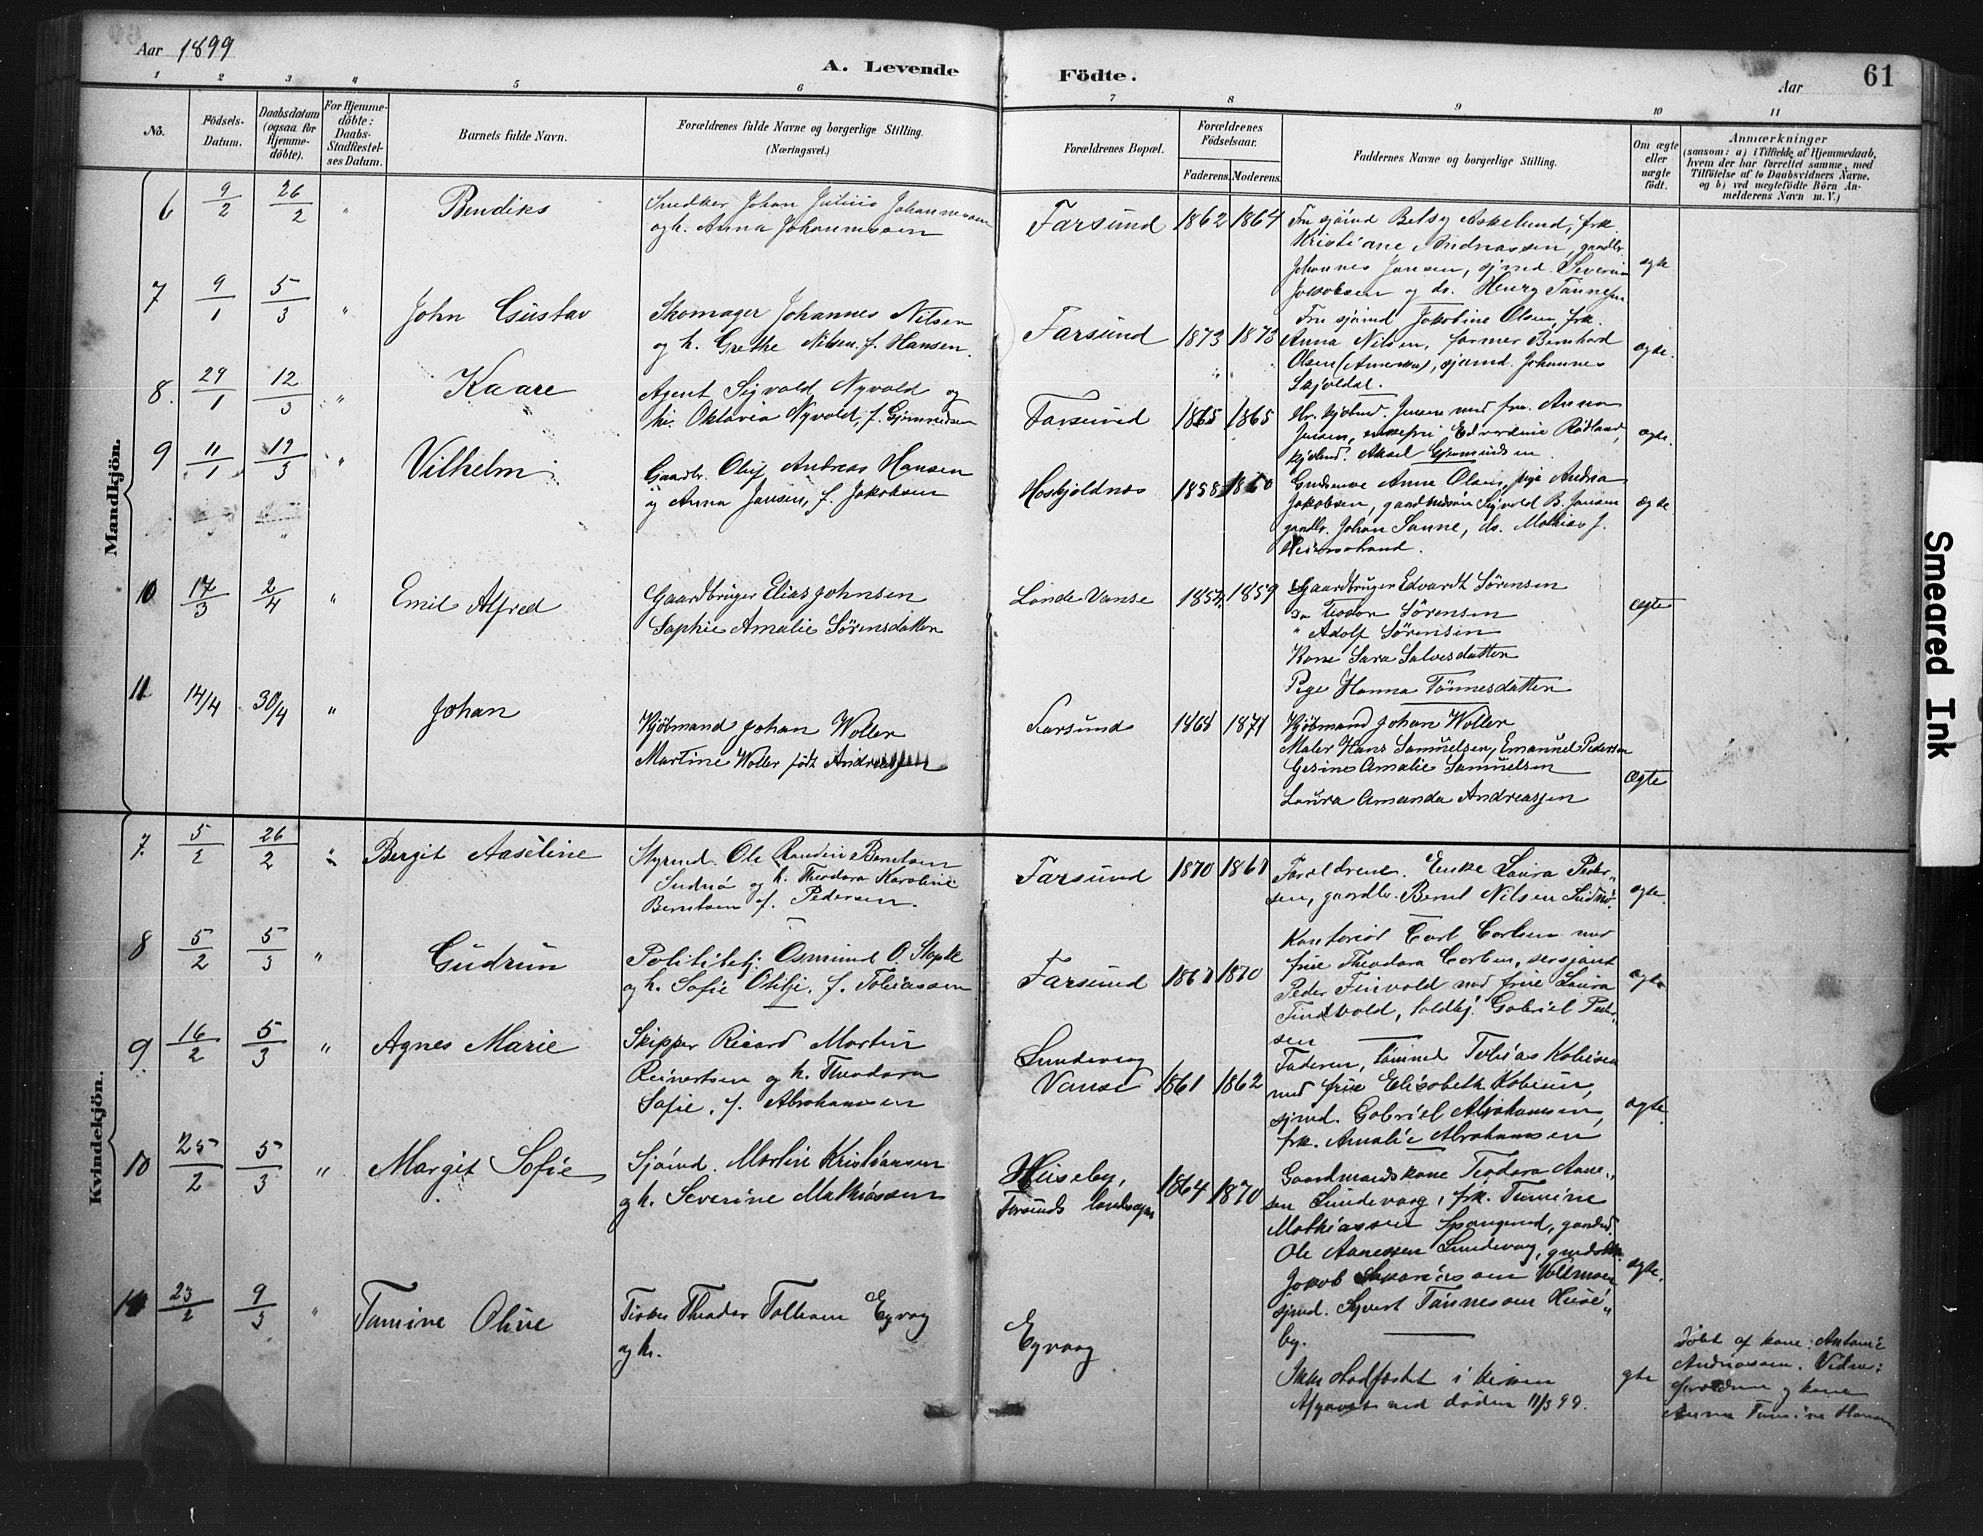 Aar 1899
A. Levende Födte.
Aar
61
1 2 3 4 5 6 7 8 9 10 11
No.
Födsels-
Datum.
Daabsdatum
(ogsaa for
Hjemme-
döbte).
For Hjemme-
döbte:
Daabs-
Stadfæstel-
ses Datum.
Barnets fulde Navn.
Forældrenes fulde Navne og borgerlige Stilling.
(Næringsvei.)
Forældrenes Bopæl.
Forældrenes
Födselsaar.
Faderens. Moderens.
Faddernes Navne og borgerlige Stilling.
Om ægte
eller
uægte
födt.
Anmærkninger
(saasom: a) i Tilfælde af Hjemmedaab,
hvem der har forrettet samme, med
Tilföielse af to Daabsvidners Navne,
og b) ved uægtefödte Börn An-
melderens Navn m. V.)
Mandkjön.
6 9/2 26/2 " Bendiks
Snedker Johan Julius Johannessen
og h. Anna Johannessen
Farsund 1862 1864
Fru sjömd Betsy Askelund, frk.
Kristiane Andreassen, gaardbr.
Johannes Jansen, sjmd. Severin
Jakobsen og do. Henry Tönnesen
ægte
7 9/1 5/3 " John Gustav
Skomager Johannes Nilsen
og h. Grethe Nilsen, f. Hansen.
Farsund 1873 1873
Fru sjömd Jakobine Olsen frk.
Anna Nilsen, farmer Bernhard
Olsen (Amerika), sjømd. Johannes
Skjoldal.
ægte.
8. 29/1 12/3 " Kaare
Agent Sigvald Nyvold og
h. Oktavia Nyvold, f. Gjermundsen
Farsund 1865 1865
Hr. kjøbmd. Jensen med fru Anna
Jensen, enkefru Edvardine Rødland,
kjøbmd. Aksel Gjermundsen
ægte.
9 11/1 19/3 " Vilhelm
Gaardbr. Oluf Andreas Hansen
og Anna Jansen, f. Jakobsen
1858 1860
Anne Olsen, pige Andrea
Jakobsen, Sigvald B. Jansen
gaardbr. Johan Sanne, do. Mathias J.
ægte
10 17/3 2/4 " Emil Alfred
Gaardbruger Elias Johnsen
Sophie Amalie Sörensdatter
Lande Vanse 1857. 1859
Gaardbruger Edvardt Sörensen
do Teodor Sörensen
" Adolf Sörensen
Kone Sara Salvesdatter
Pige Hanna Tönnesdatter
Ægte
11 14/4 30/4 " Johan
Kjöbmand Johan Woller
Martine Woller født Andreassen
Farsund 1868 1871
Kjöbmand Johan Woller
Maler Hans Samuelsen, Emanuel Pedersen
Gesine Amalie Samuelsen
Laura Amanda Andreassen
Ægte
Kvindekjön.
7. 5/2 26/2 " Bergit Aaseline
Styrmd. Ole Berntsen
og h. Theodora Karoline
Berntsen f. Pedersen.
Farsund 1870 1867
Forældrene. Enke Laura Peder-
sen, gaardbr. Bernt Nilsen
ægte.
8 5/2 5/3 " Gudrun
Politibtj. Osmund O. Stople
og h. Sofie Otilje, f. Tobiassen
Farsund 1867 1870
Kontorist Carl Carlsen med
frue Theodora Carlsen, sersjant
Peder Findvold med frue Laura
Findvold, toldbtj. Gabriel Peder-
sen
ægte
9. 16/2 5/3 " Agnes Marie
Skipper Ricard Martin
Reinertsen og h. Theodora
Sofie, f. Abrahamsen
Lundevaag
Vanse 1861 1862
Faderen, tømmd Tobias
med frue Elisabeth
sjmd. Gabriel Abrahamsen,
frk. Amalie Abrahamsen
ægte
10 25/2 5/3 " Margit Sofie
Sjömd. Martin Kristiansen
og h. Severine Mathiassen
Huseby,
Farsunds landsogn 1864 1870
Gaardmandskone Teodora Aane-
sen Lundevaag, frk. Tomine
Mathiassen
Ole Aanesen Lundevaag,
Jakob
sjmd. Syvert Tönnessen Huse-
by.
ægte.
11 23/2 9/3 " Tomine Oline
Fisker Theodor Tollisen Eqvaag
og h.
Eqvaag
Ikke stadfæstet i kirken
Afgaaet ved døden 11/3 99.
ægte
Døbt af kone Antonie
Andreassen. Vidner:
forældrene og kone
Anna Tomine Hansen
Smeared Ink